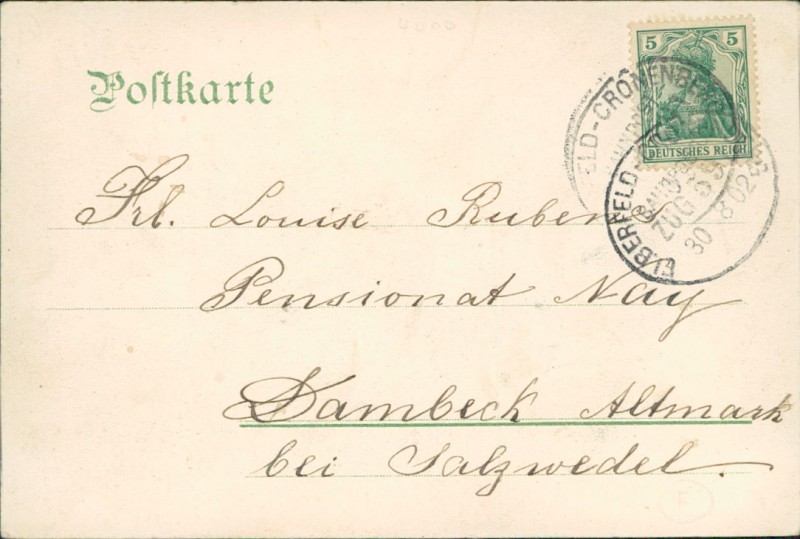 5 5
DEUTSCHES REICH
Postkarte
ELBERFELD-CRONENBERG
BAHNPOST
ZUG
30 8 02
Frl. Louise Rubens
Pensionat Nay
Dambeck Altmark
bei Salzwedel.